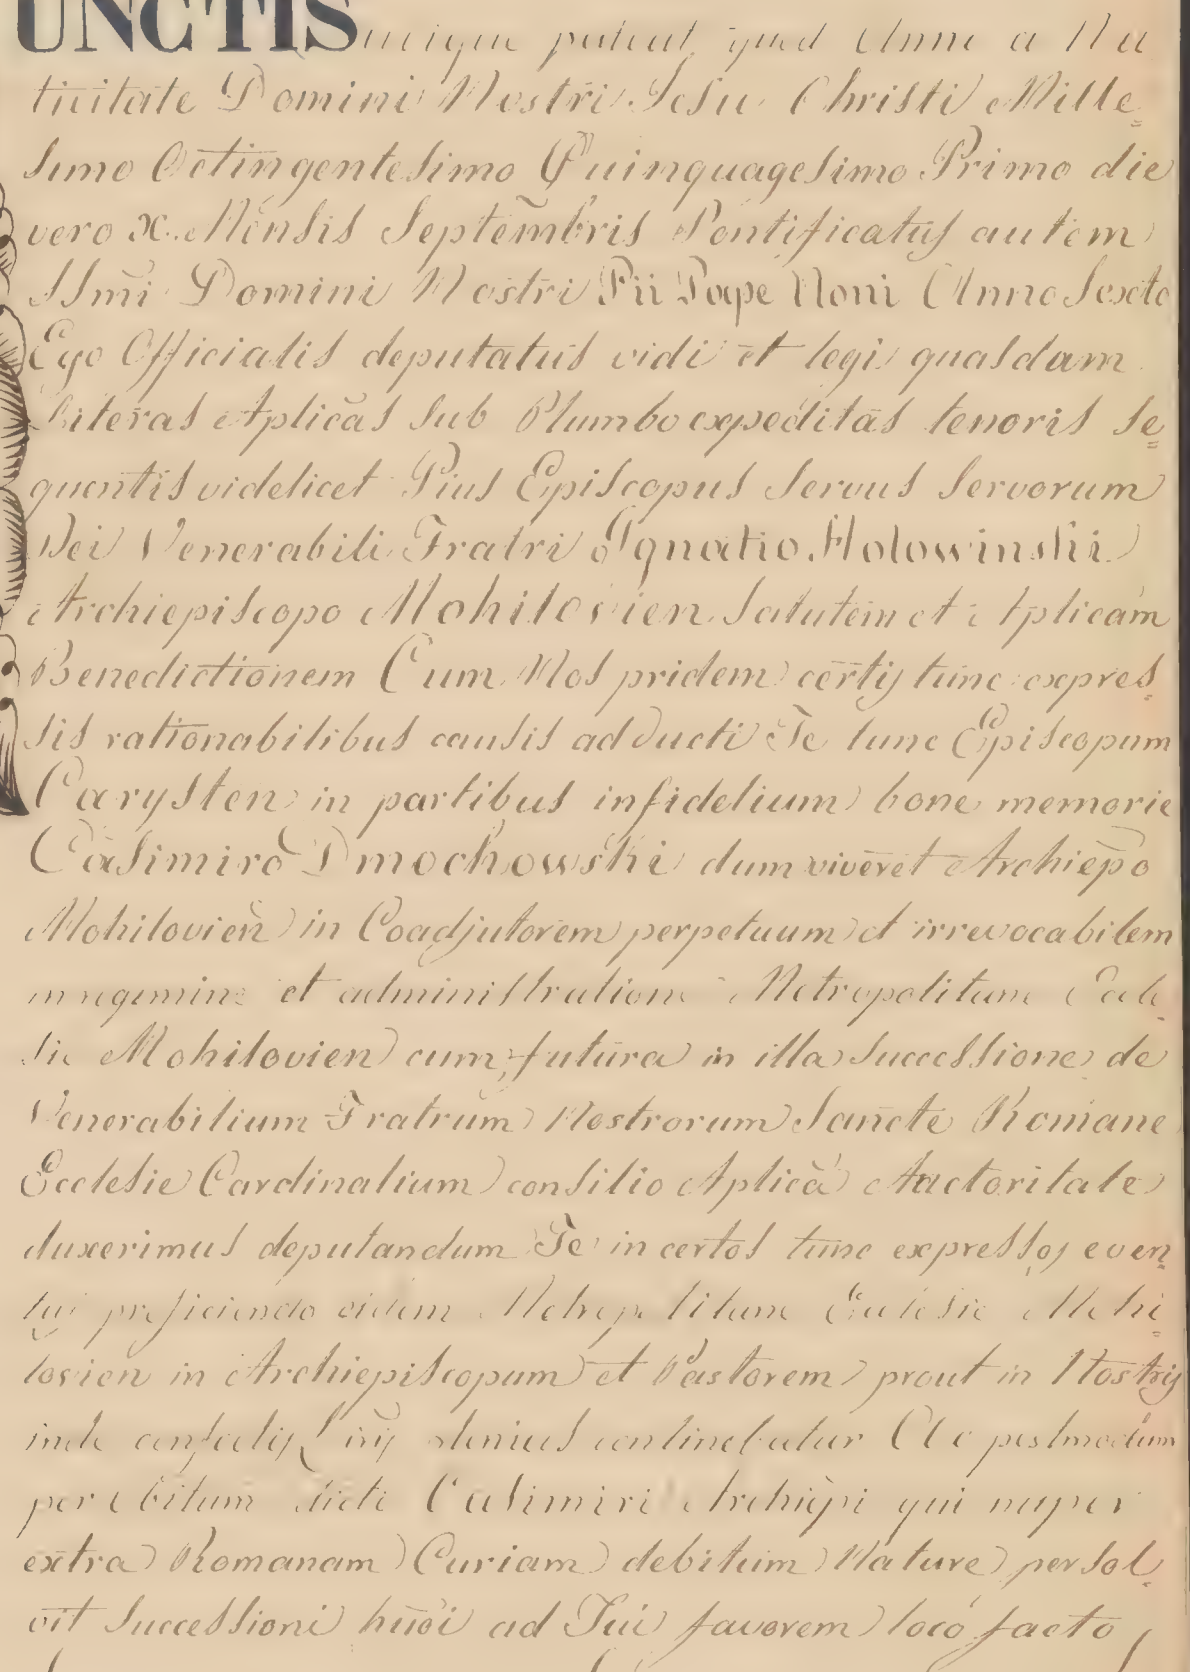 UNCTIS ubique pateat quod Anno a Na
tivitate Domini Nostri Jesu Christi Mille=
simo Octingentesimo Quinquagesimo Primo die
vero X. Mensis Septembris Pontificatus autem
SSmi Domini Nostri Pii Pape Noni Anno Sexto
Ego Officialis deputatus vidi et legi quasdam
Literas Aplicas sub Plumbo expeditas tenoris se=
quentis videlicet Pius Episcopus Servus Servorum
Dei Venerabili Fratri Ignatio Holowinski
Archiepiscopo Mohilovien Salutem et Aplicam
Benedictionem Cum Nos pridem certis tunc expres=
sis rationabilibus causis adducti Te tunc Episcopum
Carysten in partibus infidelium bone memorie
Casimiro Dmochowski dum viveret Archiepo
Mohilovien in Coadjutorem perpetuum et irrevocabilem
in regimine et administratione Metropolitane Eccle=
sie Mohilovien cum futura in illa Successione de
Venerabilium Fratrum Nostrorum Sancte Romane
Ecclesie Cardinalium consilio Aplica Auctoritate
duxerimus deputandum Te in certos tunc expressos even=
tus preficiendo eidem Metropolitane Ecclesie Mohi=
lovien in Archiepiscopum et Pastorem prout in Nostris
inde confectis Lris plenius continebatur Ac postmodum
per obitum dicti Casimiri Archiepi qui nuper
extra Romanam Curiam debitum Nature persol=
vit Successioni hmoi ad Tui favorem loco facto